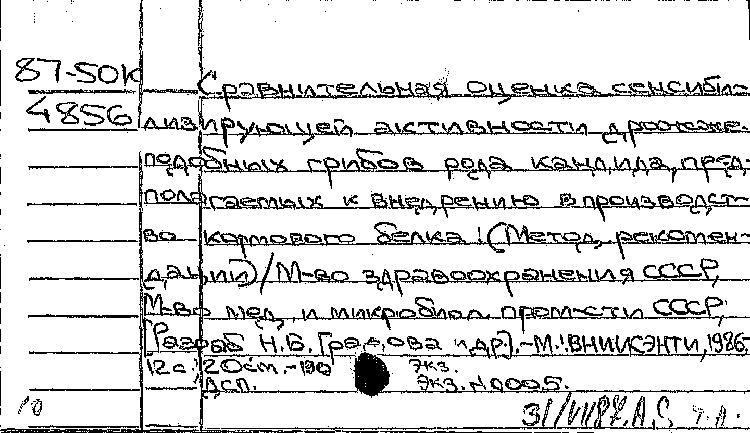 87-50К Сравнительная оценка сенсиби-
4856 лизирующей активности дрожже-
подобных грибов рода кандида, пред-
полагаемых к внедрению в производст-
во кормового белка: (Метод. рекомен-
дации) / М-во здравоохранения СССР,
М-во мед. и микробиол. пром-сти СССР;
[Разраб. Н.Б. Градова и др]. - М.: ВНИИСЭНТИ, 1986.
12 с.; 20 см. - 190 экз.
ДСП. Экз. N 0005.
10 31/VII87. А,